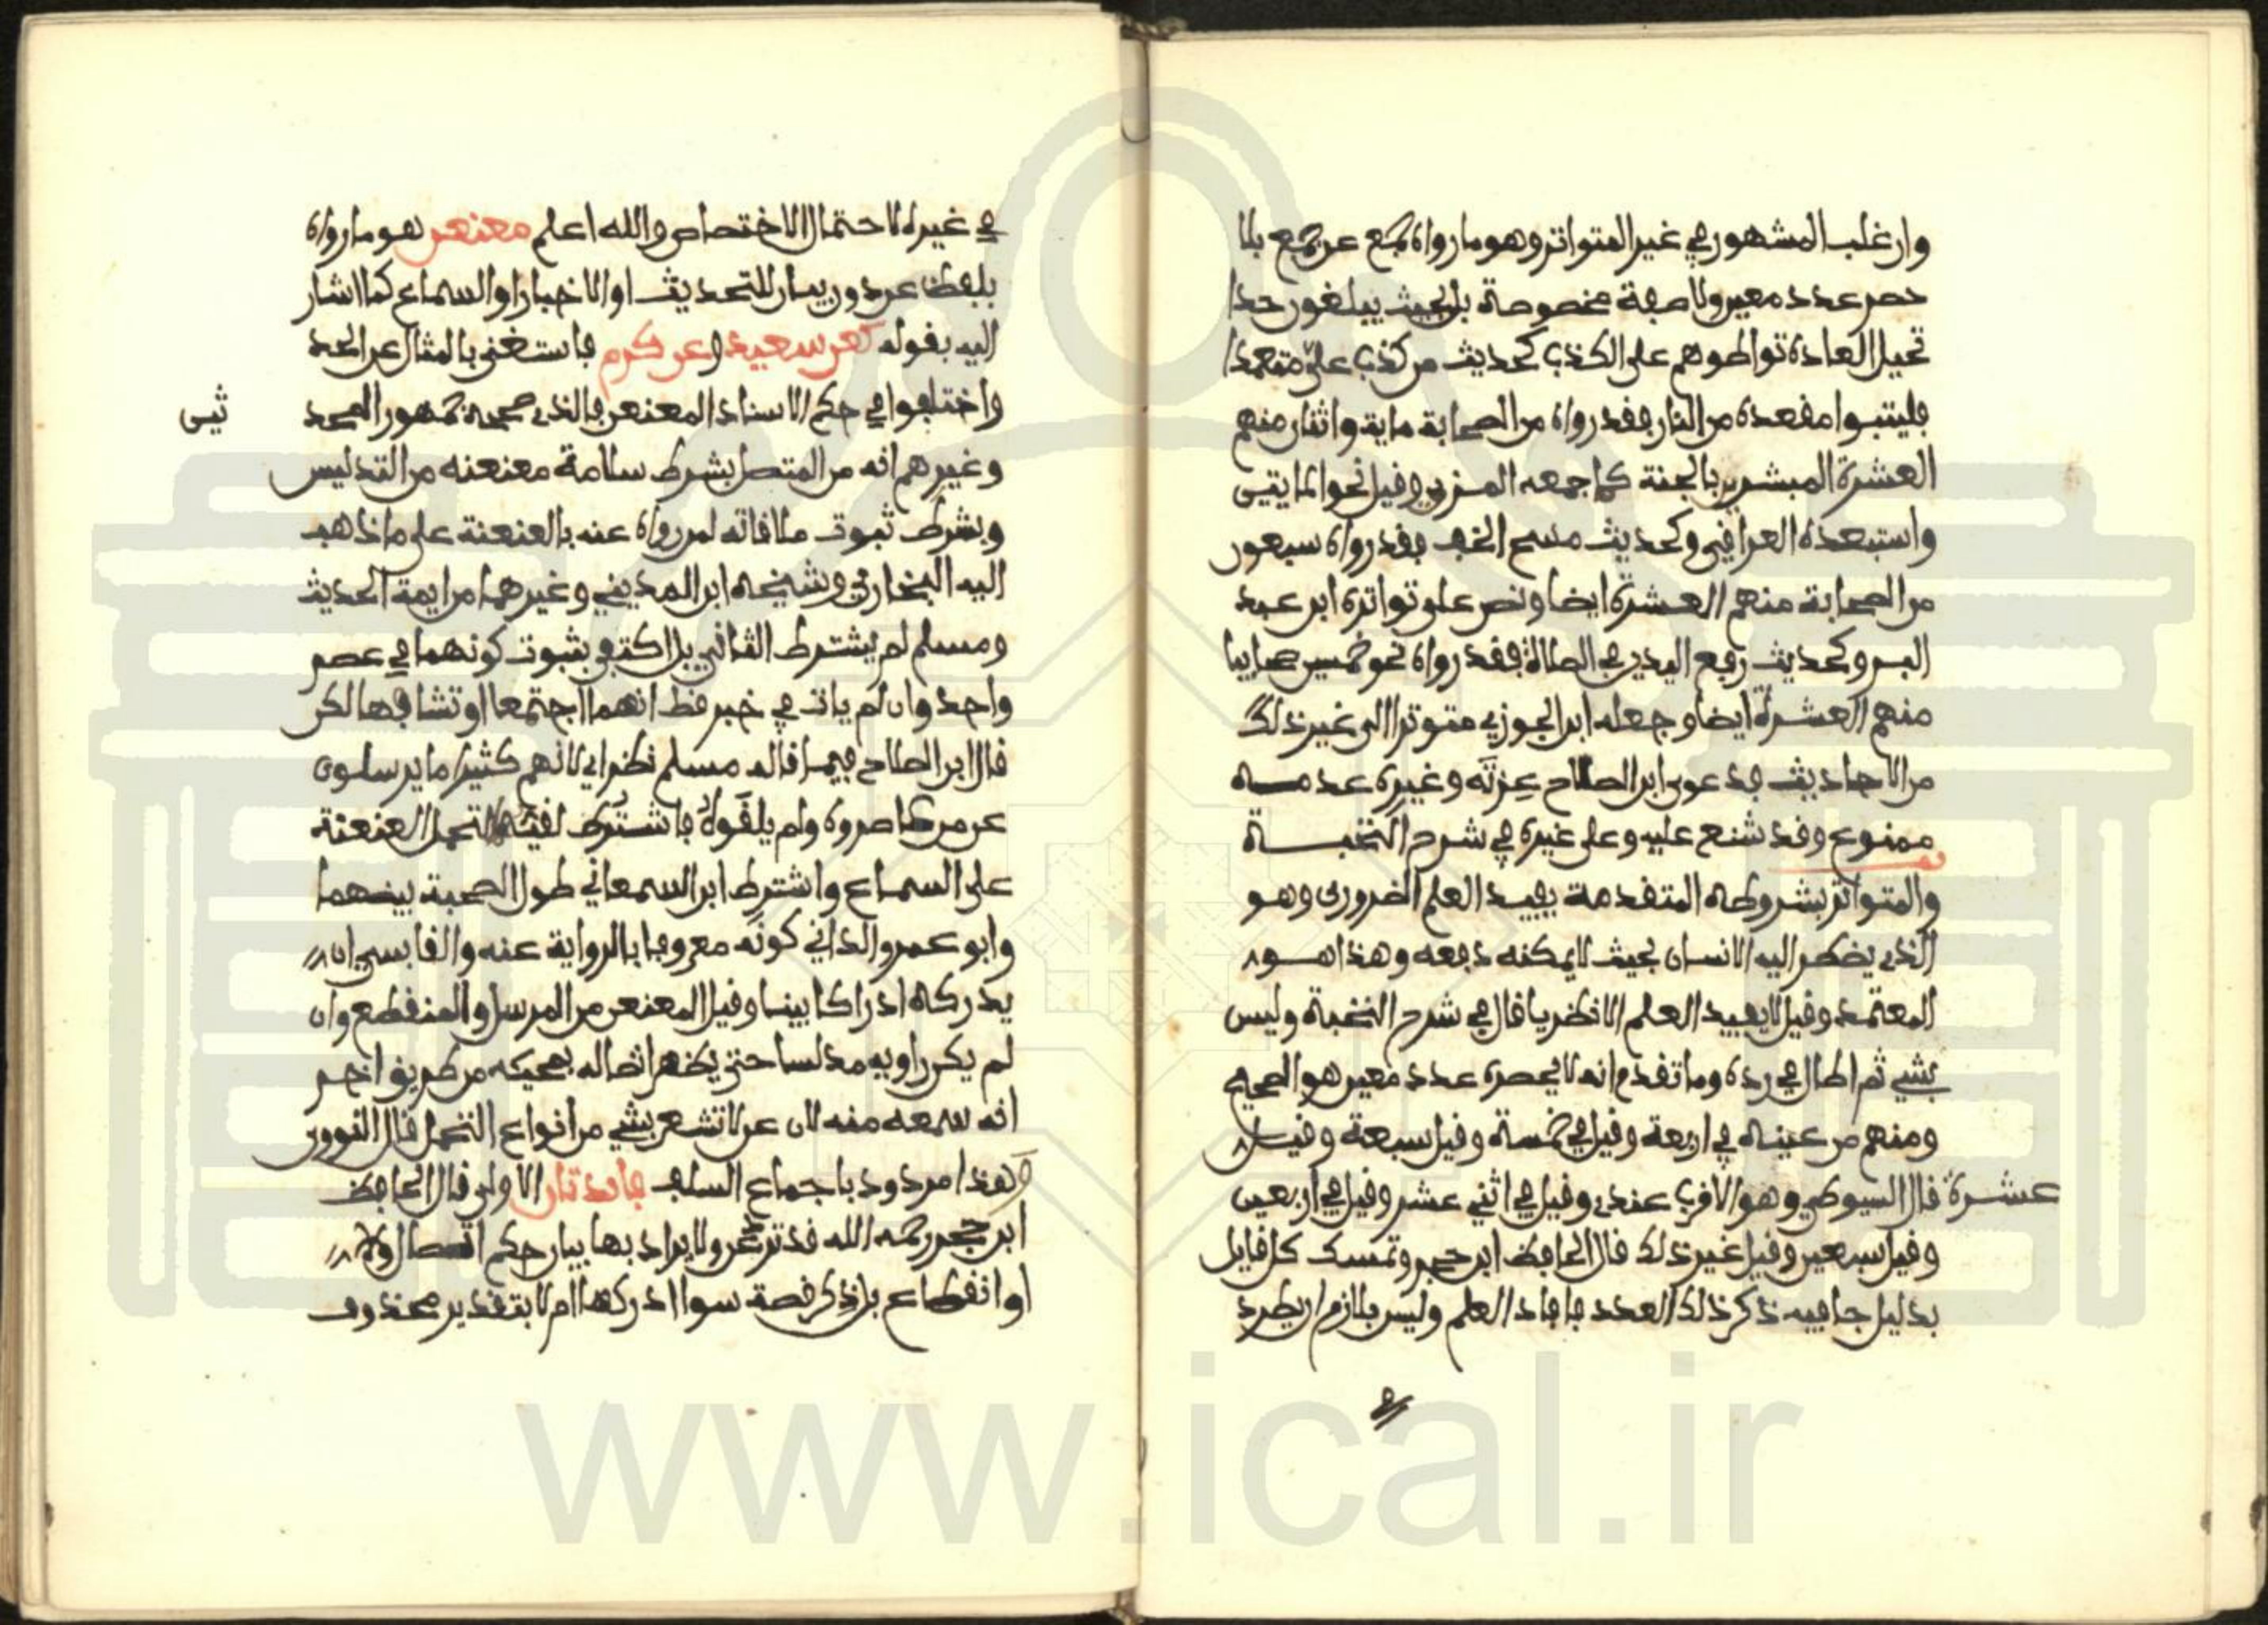 وان غلب المشهور في غير المتواتر وهو ما رواه جمع عن جمع بلا
حصر عدد معين ولا صفة مخصوصة بل بحيث يبلغون حدا
تحيل العادة تواطوهم على الكذب كحديث من كذب علي متعمدا
فليتبوا مقعده من النار فقد رواه من الصحابة ماية واثنان منهم
العشرة المبشرين بالجنة كما جمعه المزي وقيل نحو المايتين
واستبعده العراقي وكحديث مسح الخف فقد رواه سبعون
من الصحابة منهم العشرة ايضا ونص على تواتره ابن عبد
البر وكحديث رفع اليدين في الصلاة فقد رواه نحو خمسين صحابيا
منهم العشرة ايضا وجعله ابن الجوزي متوترا الى غير ذلك
من الاحاديث فدعوى ابن الصلاح عزته وغيره عدمه
ممنوع وقد شنع عليه وعلى غيره في شرح النخبة
والمتواتر بشروطه المتقدمة يفيد العلم الضروري وهو
الذي يضطر اليه الانسان بحيث لا يمكنه دفعه وهذا هو
المعتمد وقيل لا يفيد العلم الا نظريا قال في شرح النخبة وليس
بشي ثم اطال في رده وما تقدم انه لا يحصره عدد معين هو الصحيح
ومنهم من عينه في اربعة وقيل في خمسة وقيل سبعة وقيل
عشرة قال السيوطي وهو الاقرب عندي وقيل في اثني عشر وقيل في اربعين
وقيل سبعين وقيل غير ذلك قال الحافظ ابن حجر وتمسك كل قايل
بدليل جا فيه ذكر ذلك العدد فافاد العلم وليس بلازم ان يطرد
في غيره لاحتمال الاختصاص والله اعلم معنعن هو ما رواه
بلفظ عن دون بيان للتحديث او الاخبار او السماع كما اشار
اليه بقوله كعن سعيد وعن كرم فاستغنى بالمثال عن الحد
واختلفوا في حكم الاسناد المعنعن فالذي صححه جمهور المحد
ثين
وغيرهم انه من المتصل بشرط سلامة معنعنه من التدليس
وبشرط ثبوت ملاقاته لمن رواه عنه بالعنعنة على ما ذهب
اليه البخاري وشيخه ابن المديني وغيرهما من ايمة الحديث
ومسلم لم يشترط الثاني بل اكتفى بثبوت كونهما في عصر
واحد وان لم يات في خبر قط انهما اجتمعا او تشافها لكن
قال ابن الصلاح فيما قاله مسلم نظر اي لانهم كثيرا ما يرسلون
عن من عاصروه ولم يلقوه فاشترط لقيهما لتحمل العنعنة
على السماع واشترط ابن السمعاني طول الصحبة بينهما
وابو عمرو الداني كونه معروفا بالرواية عنه والقابسي ان
يدركه ادراكا بينا وقيل المعنعن من المرسل والمنقطع وان
لم يكن راويه مدلسا حتى يظهر اتصاله بمجيئه من طريق اخر
انه سمعه منه لان عن لا تشعر بشي من انواع التحمل قال النووي
وهذا مردود باجماع السلف فايدتان الاولى قال الحافظ
ابن حجر رحمه الله قد ترد عن ولا يراد بها بيان حكم اتصال ولا
او انقطاع بل ذكر قصة سوا ادركها ام لا بتقدير محذوف
www.ical.ir